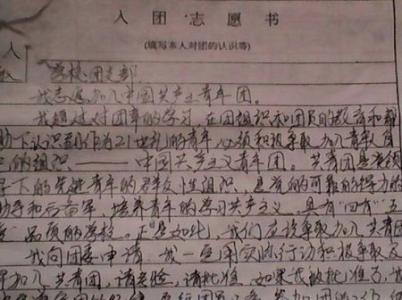 入团志愿书
(填写本人对团的认识等)
入
学校团支部
我志愿加入中国共产主义青年团。
我通过对团章的学习,在团组织和团员的教育和帮
助下认识到作为21世纪的青年,必须积极争取加入青年自
己的组织——中国共产主义青年团。共青团是党领
导下的先进青年的群众性组织,是党的可靠的得力的
助手和后备军,培养青年的学习共产主义,具有"四有"五
品质的学校。正是如此,我们应该争取加入共青团
我向团委申请:我一定用实际行动积极争取及
早加入共青团,请考验,请批准。如果我被批准了,我